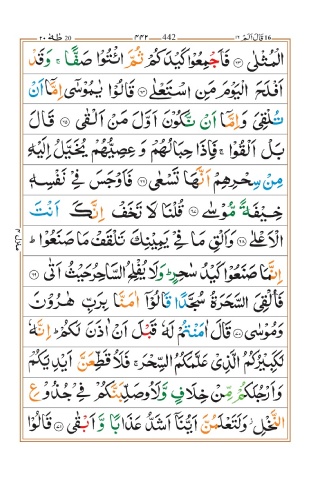 16 قَالَ اَلَمْ ١٦ 442 ٤٤٢ 20 طٰهٰ ٢٠
الْمُثْلٰى ﴿٦٣﴾ فَاَجْمِعُوْا كَيْدَكُمْ ثُمَّ ائْتُوْا صَفًّا ۚ وَقَدْ
اَفْلَحَ الْيَوْمَ مَنِ اسْتَعْلٰى ﴿٦٤﴾ قَالُوْا يٰمُوْسٰٓى اِمَّآ اَنْ
تُلْقِىَ وَاِمَّآ اَنْ نَّكُوْنَ اَوَّلَ مَنْ اَلْقٰى ﴿٦٥﴾ قَالَ
بَلْ اَلْقُوْا ۚ فَاِذَا حِبَالُهُمْ وَعِصِيُّهُمْ يُخَيَّلُ اِلَيْهِ
مِنْ سِحْرِهِمْ اَنَّهَا تَسْعٰى ﴿٦٦﴾ فَاَوْجَسَ فِىْ نَفْسِهٖ
خِيْفَةً مُّوْسٰى ﴿٦٧﴾ قُلْنَا لَا تَخَفْ اِنَّكَ اَنْتَ
الْاَعْلٰى ﴿٦٨﴾ وَاَلْقِ مَا فِىْ يَمِيْنِكَ تَلْقَفْ مَا صَنَعُوْا ؕ
اِنَّمَا صَنَعُوْا كَيْدُ سٰحِرٍ ؕ وَلَا يُفْلِحُ السَّاحِرُ حَيْثُ اَتٰى ﴿٦٩﴾
فَاُلْقِىَ السَّحَرَةُ سُجَّدًا قَالُوْٓا اٰمَنَّا بِرَبِّ هٰرُوْنَ
وَمُوْسٰى ﴿٧٠﴾ قَالَ اٰمَنْتُمْ لَهٗ قَبْلَ اَنْ اٰذَنَ لَكُمْ ؕ اِنَّهٗ
لَكَبِيْرُكُمُ الَّذِىْ عَلَّمَكُمُ السِّحْرَ ۚ فَلَاُقَطِّعَنَّ اَيْدِيَكُمْ
وَاَرْجُلَكُمْ مِّنْ خِلَافٍ وَّلَاُوصَلِّبَنَّكُمْ فِىْ جُذُوْعِ
النَّخْلِ ۫ وَلَتَعْلَمُنَّ اَيُّنَآ اَشَدُّ عَذَابًا وَّاَبْقٰى ﴿٧١﴾ قَالُوْا